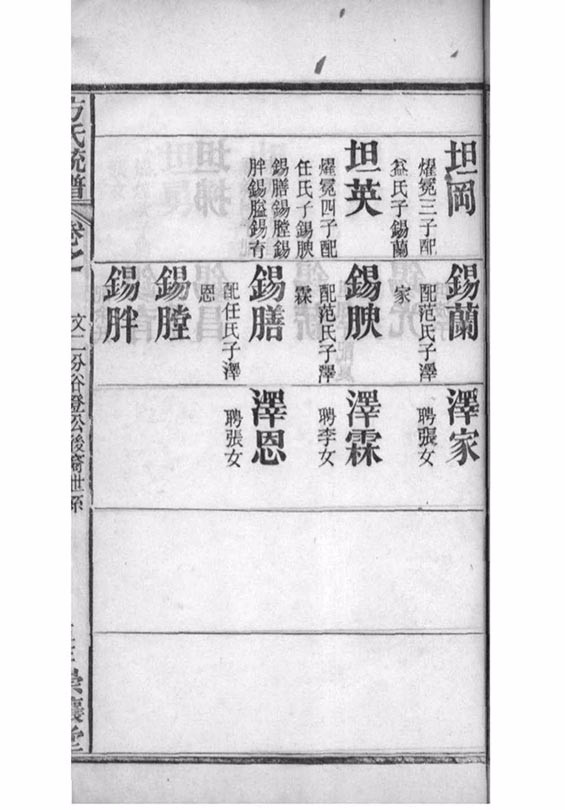 坦岡
燿冕三子配
益氏子錫蘭
坦英
燿冕四子配
任氏子錫腴
錫膳錫膛錫
胖錫膉錫有
錫蘭
配范氏子澤
家
錫腴
配范氏子澤
霖
錫膳
配任氏子澤
恩
錫膛
錫胖
澤家
聘張女
澤霖
聘李女
澤恩
聘張女
方氏統譜
卷之
文二份谷登公後裔世系
崇讓堂